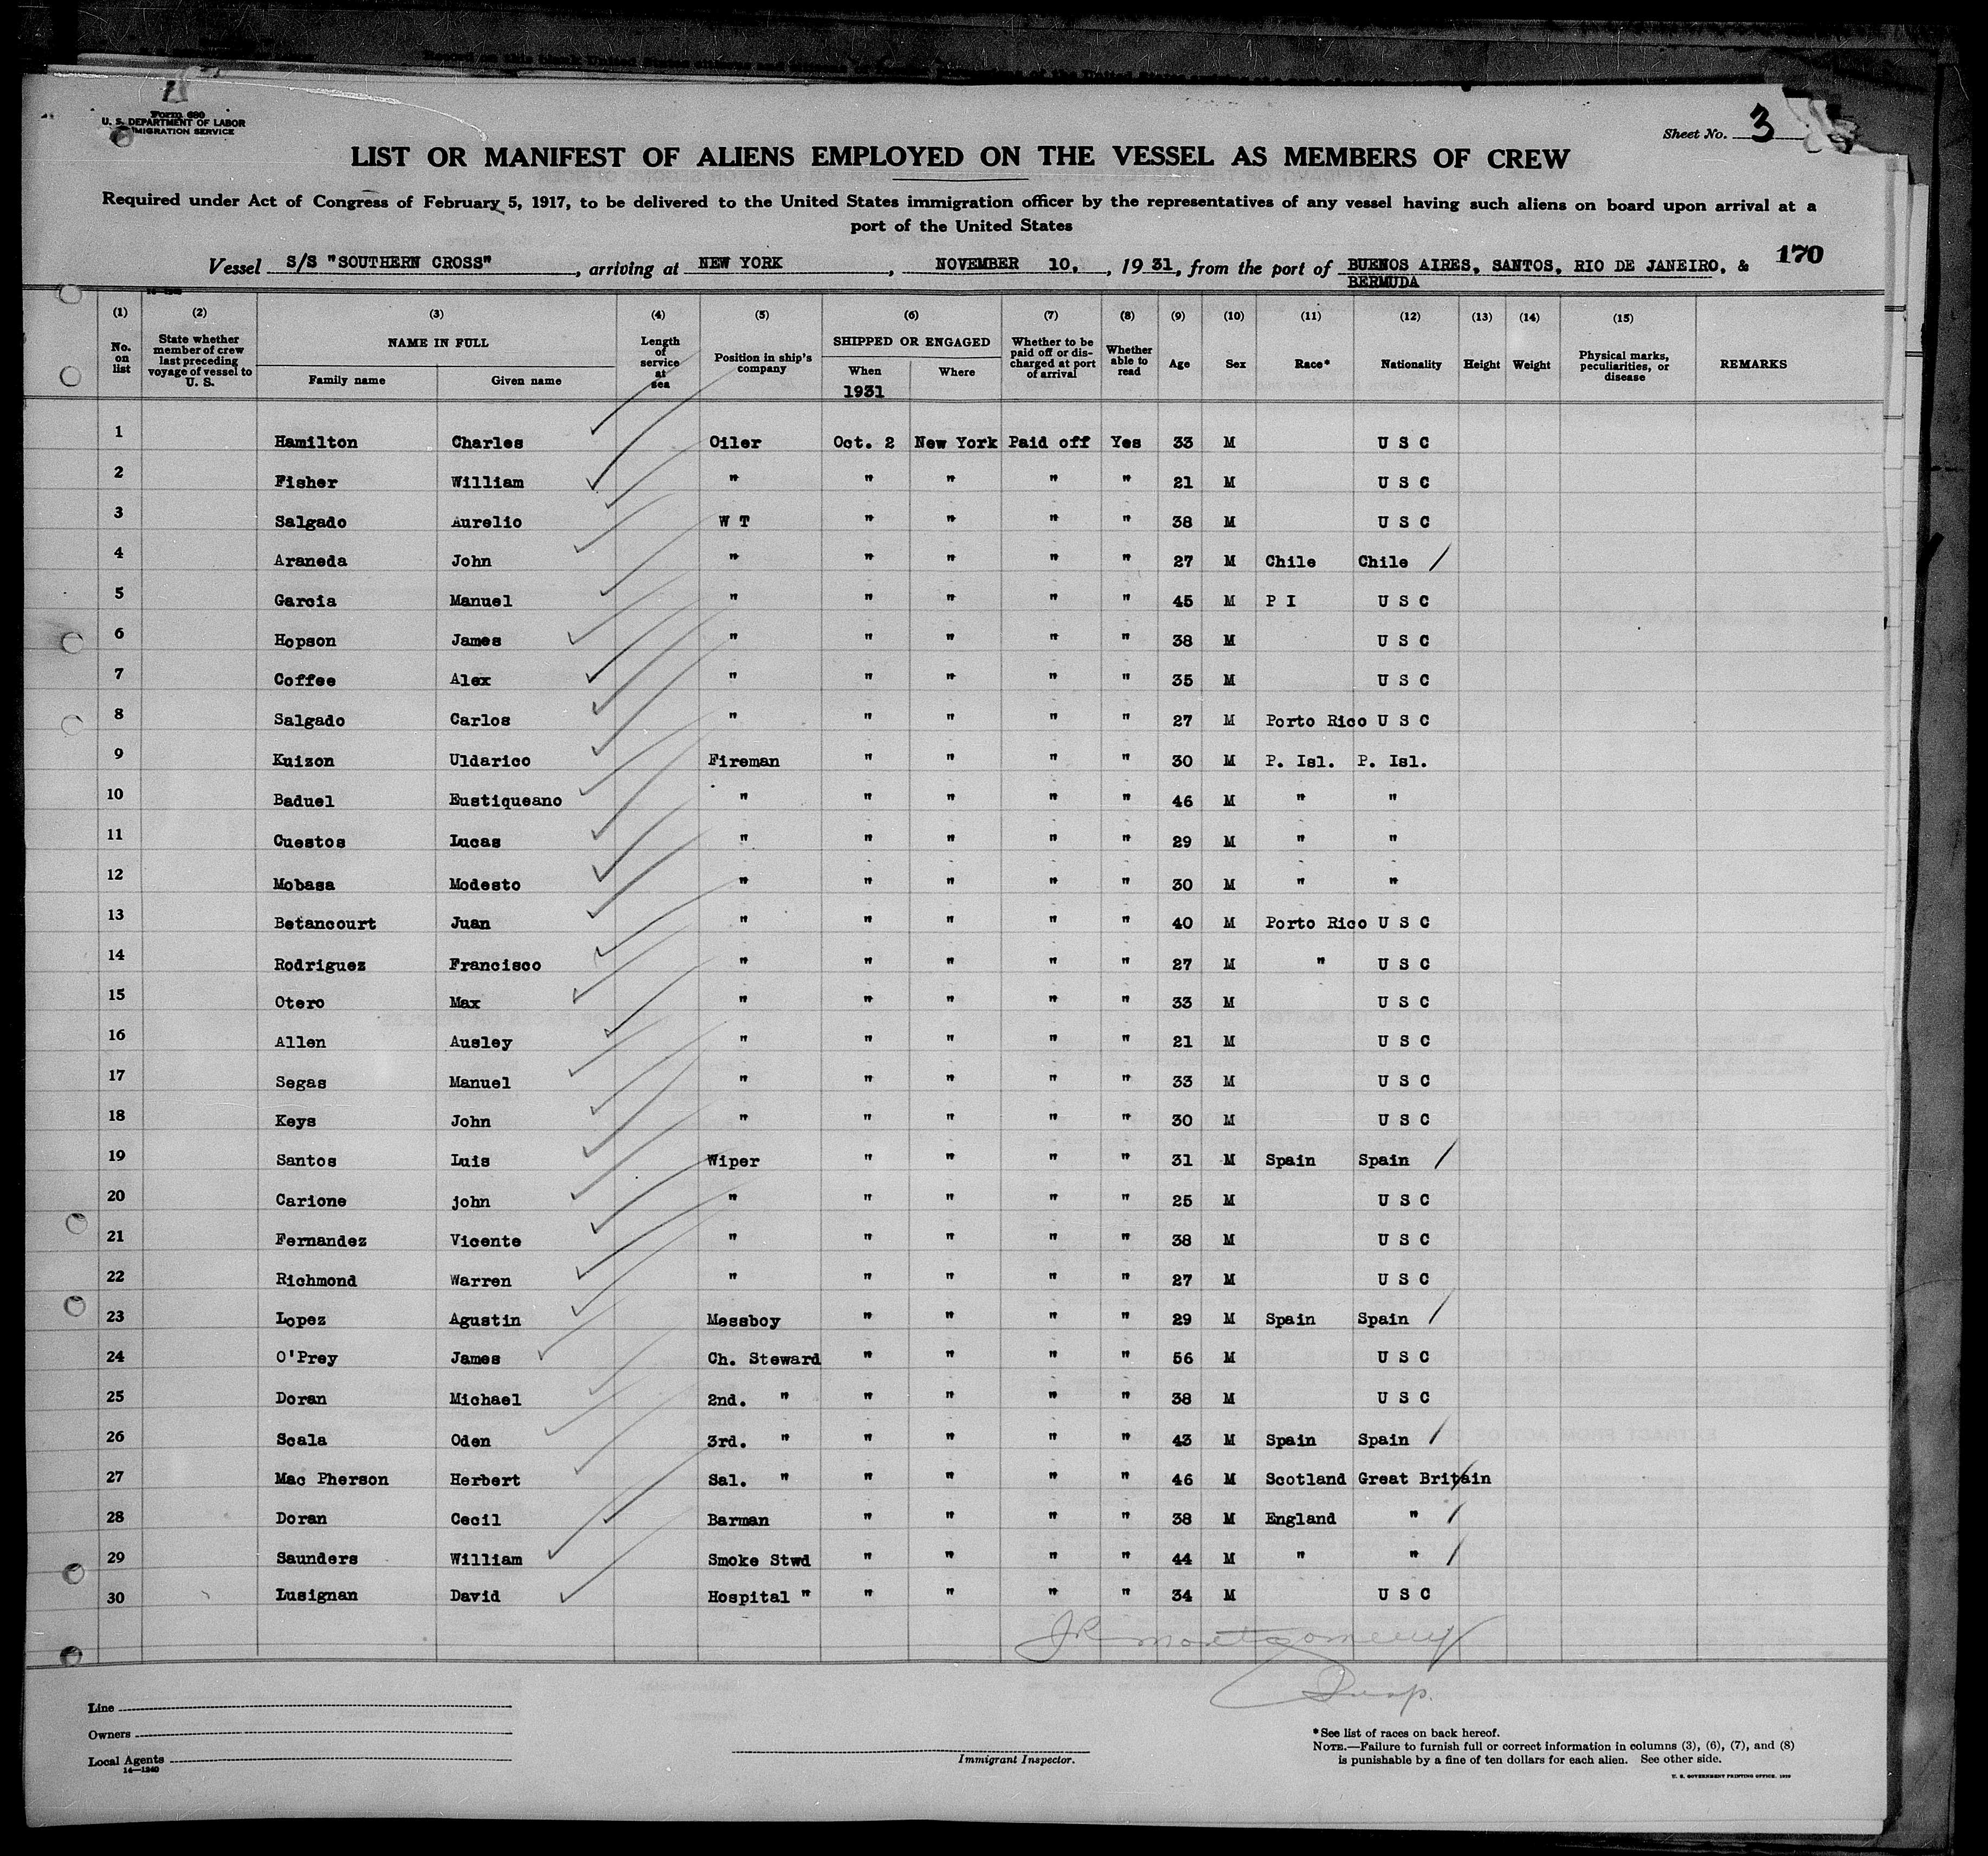 Form 680
U. S. DEPARTMENT OF LABOR
IMMIGRATION SERVICE
Sheet No. 3
LIST OR MANIFEST OF ALIENS EMPLOYED ON THE VESSEL AS MEMBERS OF CREW
Required under Act of Congress of February 5, 1917, to be delivered to the United States immigration officer by the representatives of any vessel having such aliens on board upon arrival at a
port of the United States
170
Vessel S/S "SOUTHERN CROSS", arriving at NEW YORK, NOVEMBER 10, 1931, from the port of BUENOS AIRES, SANTOS, RIO DE JANEIRO, &
BERMUDA
(1) (2) (3) (4) (5) (6) (7) (8) (9) (10) (11) (12) (13) (14) (15)
No. on list State whether member of crew last preceding voyage of vessel to U. S. NAME IN FULL Family name Given name Length of service at sea Position in ship's company SHIPPED OR ENGAGED When Where Whether to be paid off or discharged at port of arrival Whether able to read Age Sex Race* Nationality Height Weight Physical marks, peculiarities, or disease REMARKS
1931
1 Hamilton Charles Oiler Oct. 2 New York Paid off Yes 33 M U S C
2 Fisher William " " " " " 21 M U S C
3 Salgado Aurelio W T " " " " 38 M U S C
4 Araneda John " " " " " 27 M Chile Chile /
5 Garcia Manuel " " " " " 45 M P I U S C
6 Hopson James " " " " " 38 M U S C
7 Coffee Alex " " " " " 35 M U S C
8 Salgado Carlos " " " " " 27 M Porto Rico U S C
9 Kuizon Uldarico Fireman " " " " 30 M P. Isl. P. Isl.
10 Baduel Eustiqueano " " " " " 46 M " "
11 Cuestos Lucas " " " " " 29 M " "
12 Mobasa Modesto " " " " " 30 M " "
13 Betancourt Juan " " " " " 40 M Porto Rico U S C
14 Rodriguez Francisco " " " " " 27 M " U S C
15 Otero Max " " " " " 33 M U S C
16 Allen Ausley " " " " " 21 M U S C
17 Segas Manuel " " " " " 33 M U S C
18 Keys John " " " " " 30 M U S C
19 Santos Luis Wiper " " " " 31 M Spain Spain /
20 Carione john " " " " " 25 M U S C
21 Fernandez Vicente " " " " " 38 M U S C
22 Richmond Warren " " " " " 27 M U S C
23 Lopez Agustin Messboy " " " " 29 M Spain Spain /
24 O'Prey James Ch. Steward " " " " 56 M U S C
25 Doran Michael 2nd. " " " " " 38 M U S C
26 Scala Oden 3rd. " " " " " 43 M Spain Spain /
27 Mac Pherson Herbert Sal. " " " " " 46 M Scotland Great Britain
28 Doran Cecil Barman " " " " 38 M England " /
29 Saunders William Smoke Stwd " " " " 44 M " " /
30 Lusignan David Hospital " " " " " 34 M U S C
JR Montgomery
Insp.
Line
Owners
Local Agents
14—1240
Immigrant Inspector.
*See list of races on back hereof.
NOTE.—Failure to furnish full or correct information in columns (3), (6), (7), and (8)
is punishable by a fine of ten dollars for each alien. See other side.
U. S. GOVERNMENT PRINTING OFFICE. 1929